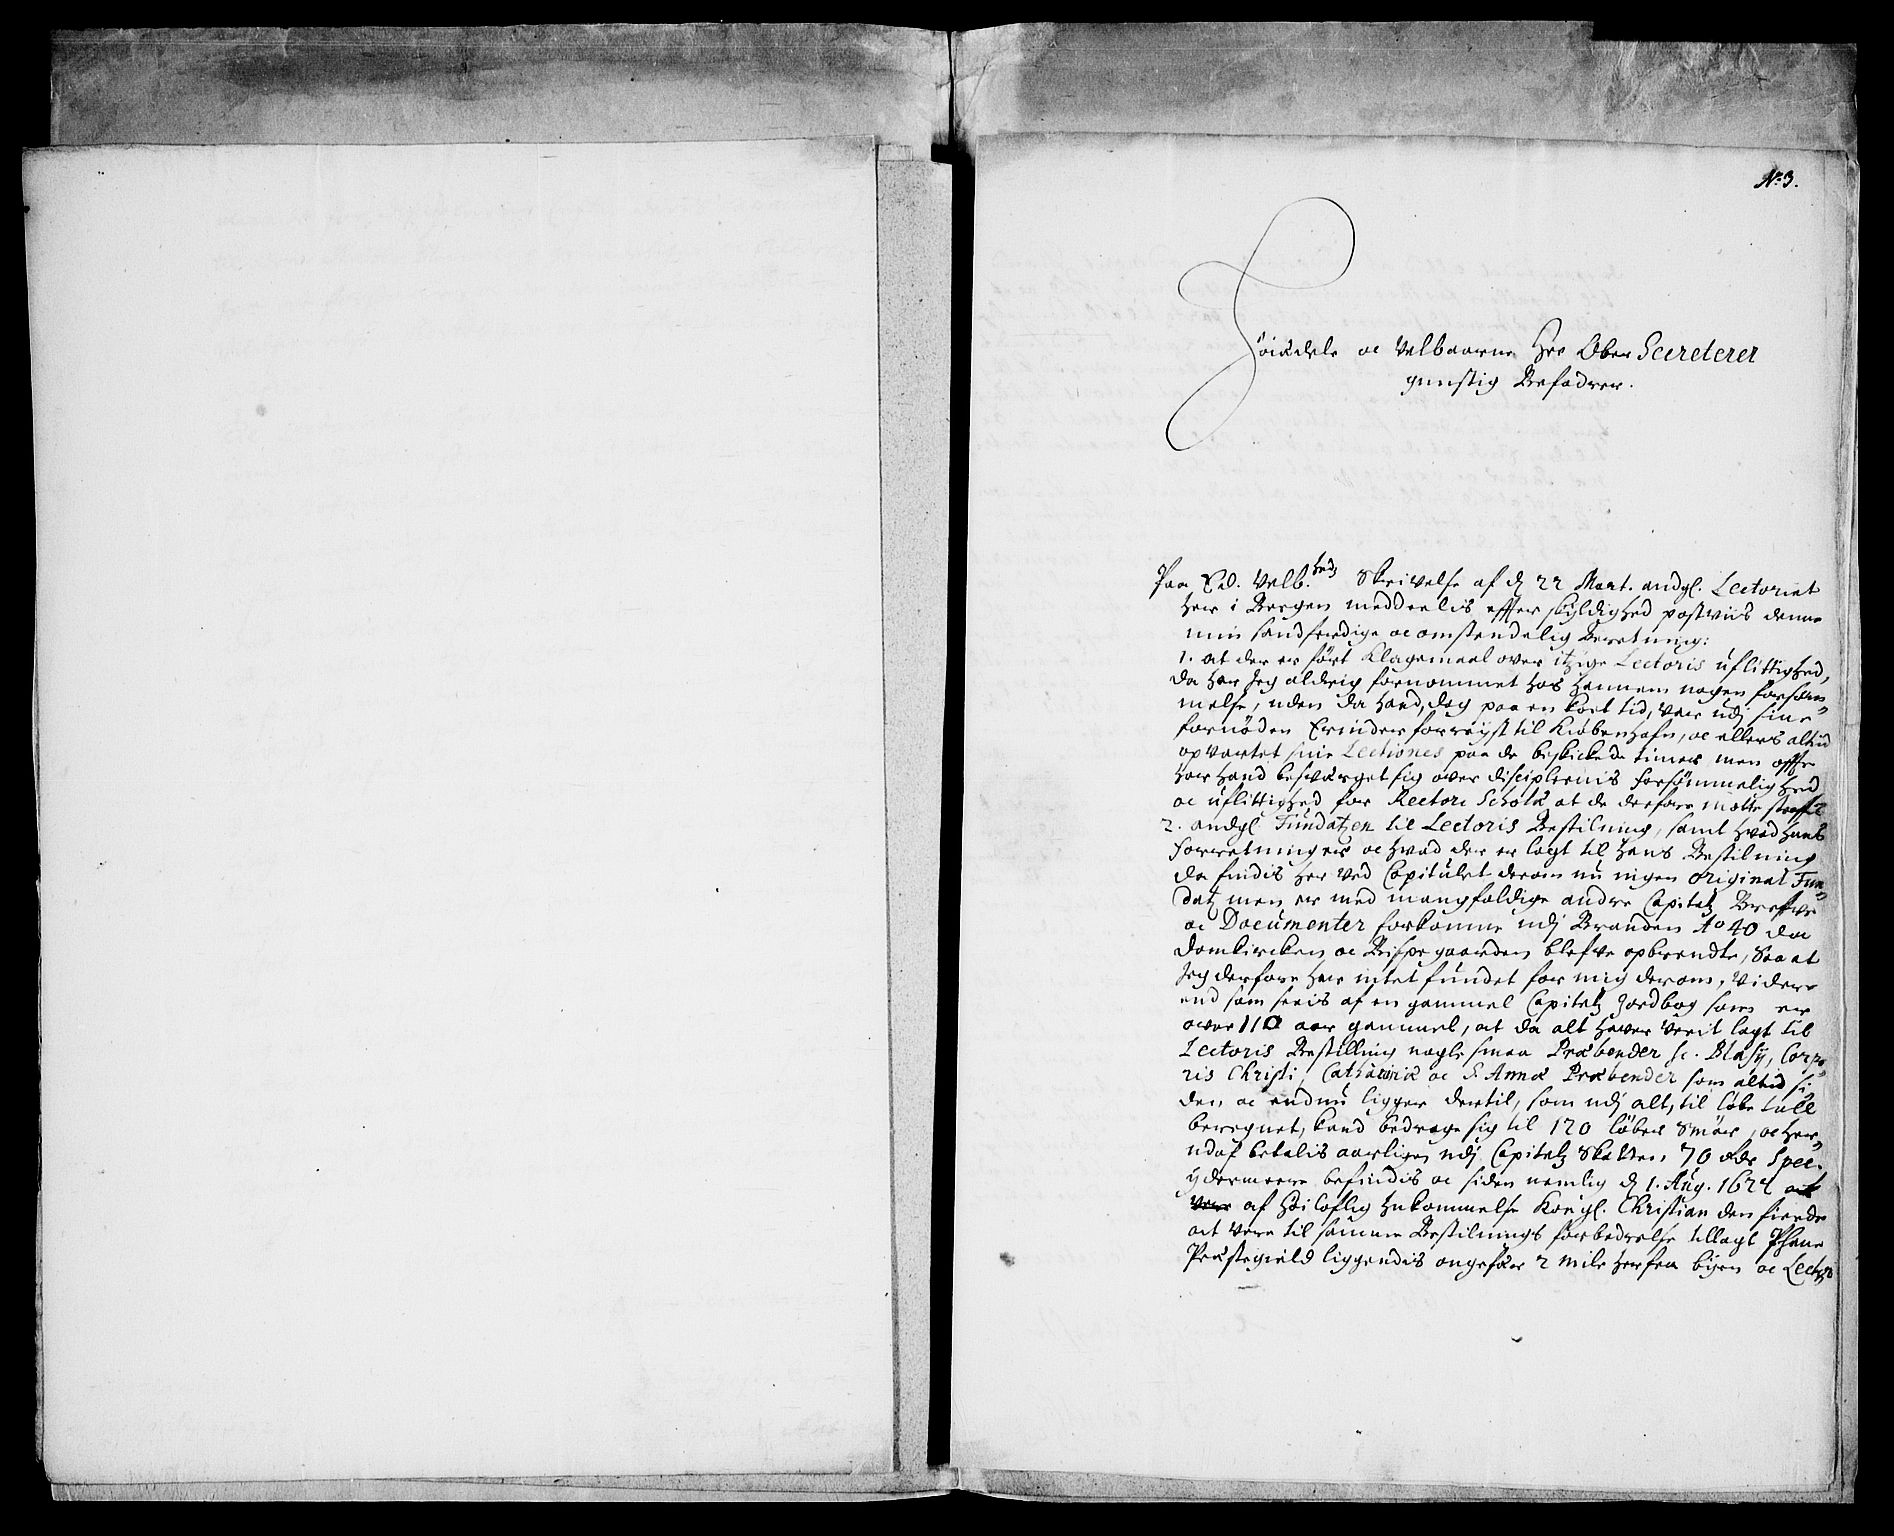 No 3.
Høiædele oc Velbaarne Her Ober Secreterer
gunstig Befodrer.
Paa Eed. Velb.hedz Skrivelse af dj 22 Mart. andgl. Lectoriet
her i Bergen meddeelis effter skyldighed postviis denne
min sandferdige oc omstendelig Beretning:
1. at der er ført Klagemaal over itzige Lectoris uflittighed,
da har Jeg aldrig fornommet hos hannem nogen forsøm„
melse, uden da hand, dog paa en kort tid, var udj sine
fornøden Erinder forreyst til Kiøbenhafn, oc ellers altid
opvartet sine Lectiones paa de beskickede timer, men offte
har hand besværget sig over disciplernis forsømmelighed
oc uflittighed for Rectore Scholæ at de derfore motte straffe
2. andgl. Fundatzen til Lectoris Bestilning, samt hvad hans
forretninger oc hvad der er lagt til hans Bestilning
da findis her ved Capitulet derom nu ingen original Fun„
datz men er med mangfoldige andre Capitelz Breffve
oc Documenter forkomne udj Branden Ao 40 da
Domkircken oc Bispegaarden blefve opbrendte, saa at
Jeg derfore har intet fundet for mig derom, videre
end som seeis af en gammel Capitelz Jordbog som er
over 110 aar gammel, at da alt haver verit lagt til
Lectoris Bestilling nogle smaa Præbender sc. Blasij, Corpo„
ris Christi, Catharinæ oc S. Annæ Præbender som altid si„
den oc endnu ligger dertil, som udj alt, til løbe tall
beregnet, kand bedrage sig til 120 løber Smør, oc her„
udaf betalis aarligen udj Capitelz Skatten 70 Rdr Spec.
ydermeere befindis oc siden nemlig dj 1. Aug. 1622
af Høiloflig hukommelse Kongl. Christian den fierde
at vere til samme Bestilnings forbedrelse tillagt Phane
Præstegield liggendis ongefær 2 mile her fra byen oc Lectoris